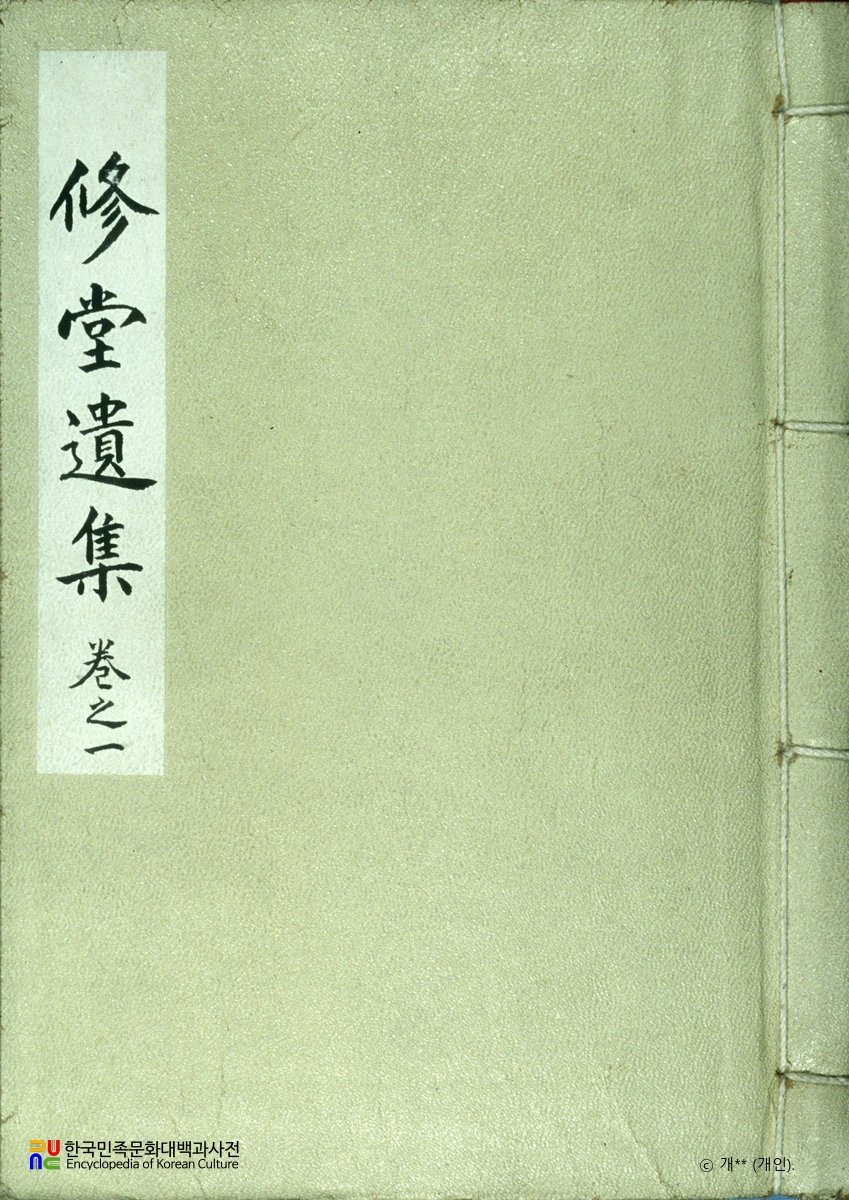 修堂遺集 卷之一
한국민족문화대백과사전
Encyclopedia of Korean Culture
ⓒ 개** (개인).